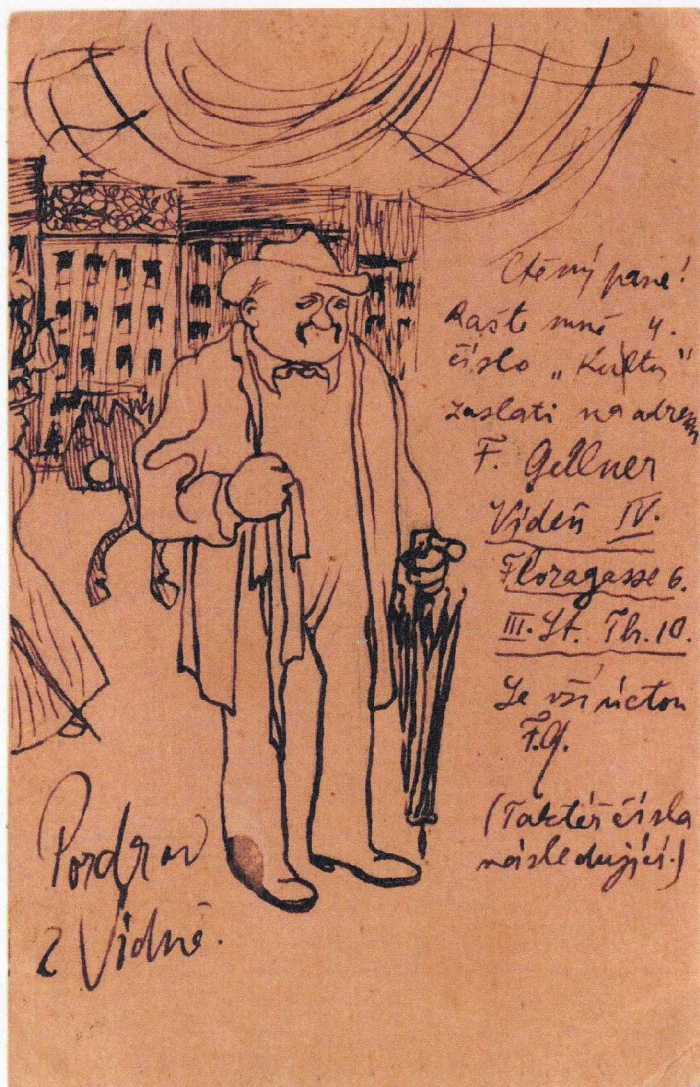 Ctěný pane!
Račte mně 4.
číslo „Kultu"
zaslati na adresu
F. Gellner
Vídeň IV.
Floragasse 6.
III. St. Th. 10.
Se vší úctou
F.G.
(Taktéž čísla
následující.)
Pozdrav
z Vídně.